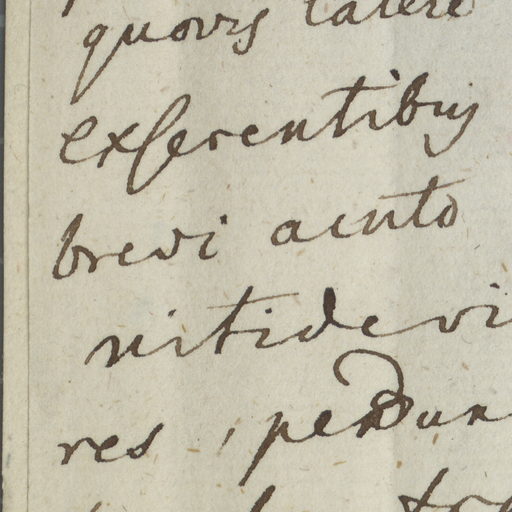 quovis latere
exserentibus
brevi acuto
nitide vi
res, pendun